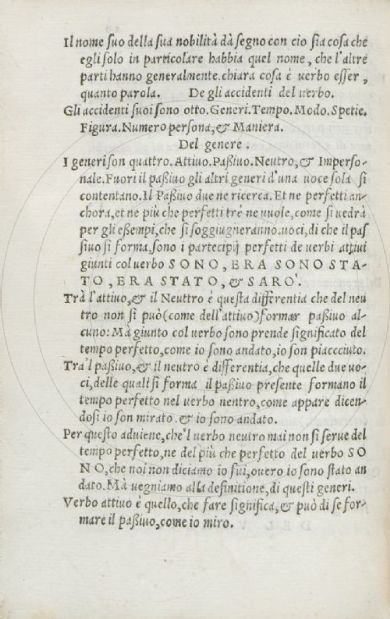 Il nome suo della sua nobilità dà segno con cio sia cosa che
egli solo in particolare habbia quel nome, che l'altre
parti hanno generalmente. chiara cosa è verbo esser,
quanto parola. De gli accidenti del verbo.
Gli accidenti suoi sono otto. Generi. Tempo. Modo. Spetie.
Figura. Numero persona, & Maniera.
Del genere.
I generi son quattro. Attiuo. Paßiuo. Neutro, & Imperso-
nale. Fuori il paßiuo gli altri generi d'una uoce sola si
contentano. Il Paßiuo due ne ricerca. Et ne perfetti an-
chora, et ne più che perfetti tre ne uuole, come si uedrà
per gli eßempi, che si soggiugneranno. uoci, di che il paß
siuo si forma, sono i participij perfetti de uerbi attiui
giunti col uerbo SONO, ERA SONO STA-
TO, ERA STATO, & SARO'.
Trà l'attiuo, & il Neuttro è questa differentia che del neu
tro non si può (come dell'attiuo) formar paßiuo al-
cuno: Mà giunto col uerbo sono prende significato del
tempo perfetto, come io sono andato, io son piacciuto.
Tra'l paßiuo, & il neutro è differentia, che quelle due uo-
ci, delle quali si forma il paßiuo presente formano il
tempo perfetto nel uerbo nentro, come appare dicen-
dosi io son mirato & io sono andato.
Per questo aduiene, che'l uerbo neutro mai non si serue del
tempo perfetto, ne del più che perfetto del uerbo SO
NO, che noi non diciamo io fui, ouero io sono stato an
dato. Mà uegniamo alla definitione, di questi generi.
Verbo attiuo è quello, che fare significa, & può di se for-
mare il paßiuo, come io miro.